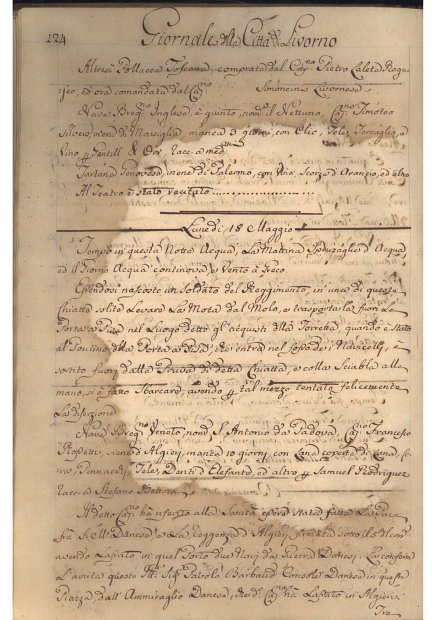 124 Giornale della Città di Livorno
Altresì Pollacca Toscana, comprata dal Cap.no Pietro Ragu-
seo, ed ora comandata dal Cap.no Simoncini Livornese
Nave Brig.no Inglese, è giunto, nom.o il Nettuno, Cap.no Timoteo
viene da Marsiglia, manca 3 giorni, con Olio, Tele, e
Vino p Racc. a med.mo
Tartana Genovese, viene di Palermo, con Vino, Scorza d'Arancio, ed altro
Al Teatro è stato recitato
Lunedì 18 Maggio
Tempo in questa Notte Acqua, La Mattina Spruzzaglie d'Acqua,
ed il Giorno Acqua continova, e Vento a Greco.
Essendosi nascosto un Soldato del Reggimento, in una di queste
Chiatte solite Levare La Mota dal Molo, e trasportarla fuori Le
Porta a Pisa nel Luogo detto gl'acquisti alla Torretta, quando è stato
al Pontino alla Porta a Pisa, che entra nel fosso dei Navicelli, è
sortito fuori dalla Prua di detta Chiatta, e colla Sciabla alle
mano, si è fatto sbarcare, avendo p tal mezzo tentato felicemente
La diserzione.
Nave Brig.no Veneto nom.o S. Antonio da Padova Cap.no Francesco
viene d'Algieri, manca 10 giorni, con Lana, Cuoja, Cera,
Pennacchi, Tele, Denti d'Elefante, ed altro p Samuel Rodriguez
racc. a Stefano
Il detto Cap.no ha riferito alla Sanità essere stata fatta La Pace
frà S. M. Danese, e La Reggenza d'Algieri, firmata sotto il
avendo Lasciato in quel Porto due Navi da Guerra Danesi. La conferma
L'avuta questo Ill.e Sig.re Barbaud Console Danese in questa
Piazza dall'Ammiraglio Danese, che d.o Cap.no ha Lasciato in Algieri.
Tra